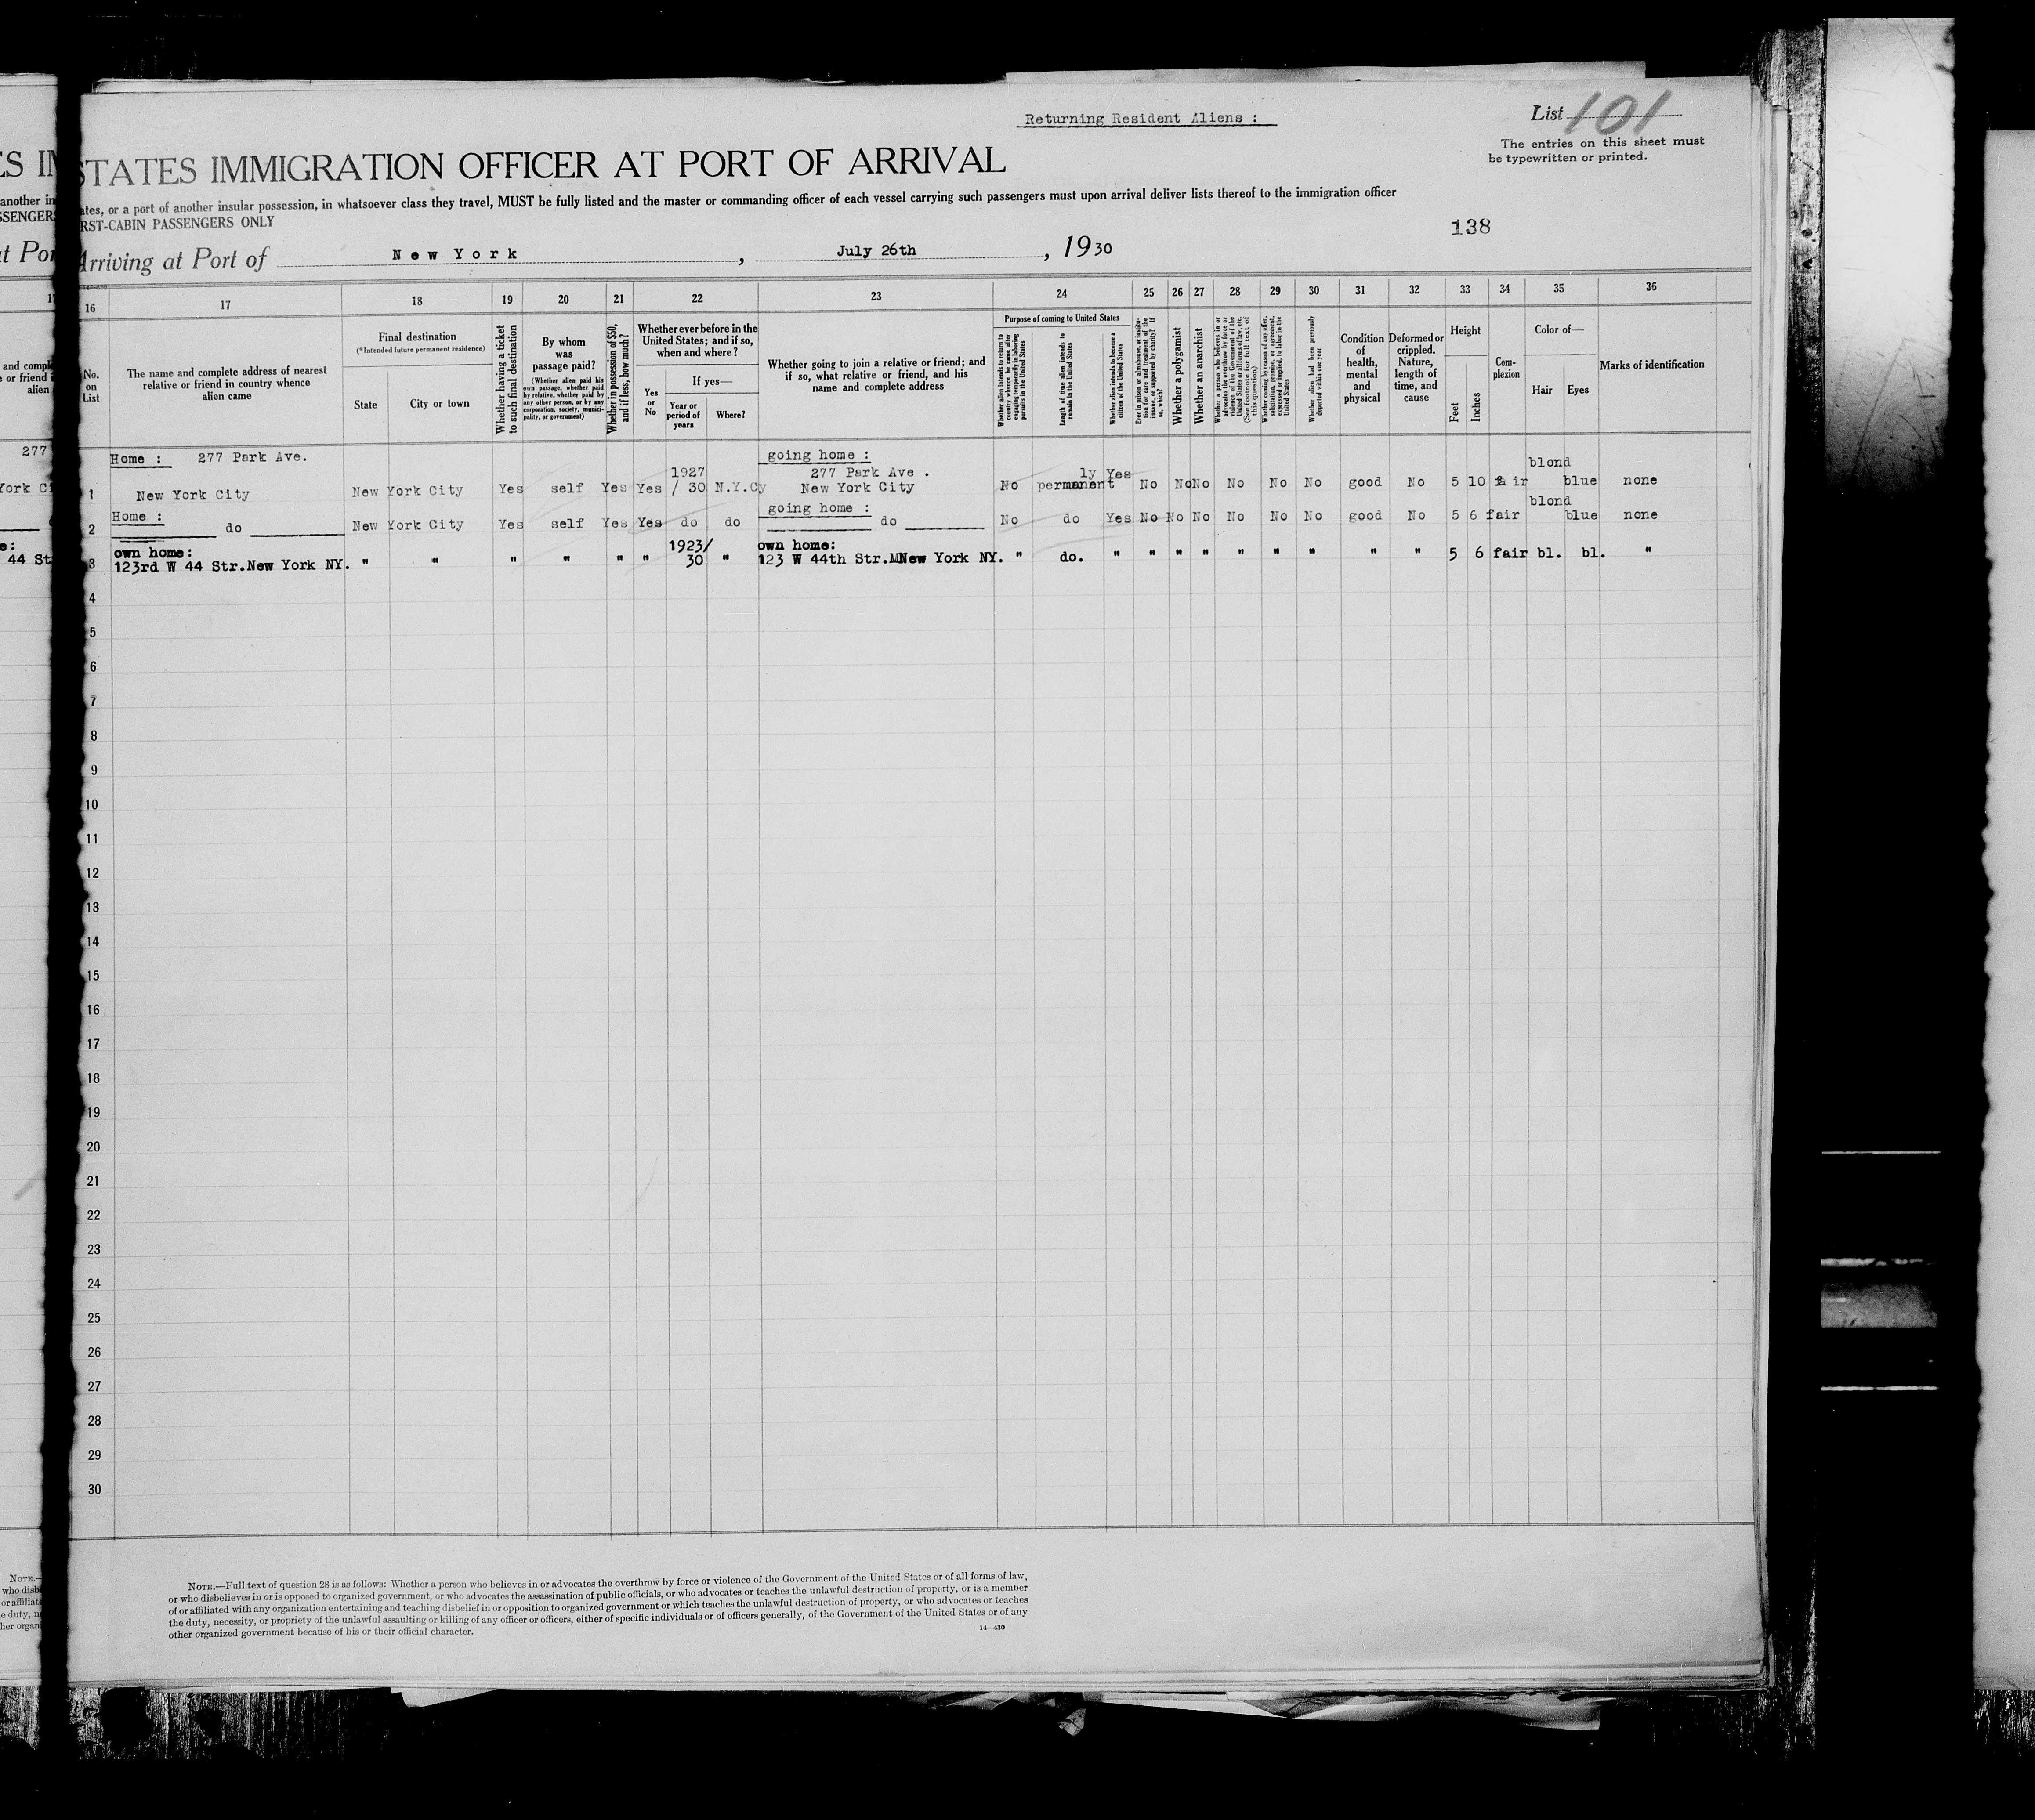 Returning Resident Aliens :
List 101
The entries on this sheet must
be typewritten or printed.
STATES IMMIGRATION OFFICER AT PORT OF ARRIVAL
ates, or a port of another insular possession, in whatsoever class they travel, MUST be fully listed and the master or commanding officer of each vessel carrying such passengers must upon arrival deliver lists thereof to the immigration officer
RST-CABIN PASSENGERS ONLY
138
Arriving at Port of New York, July 26th, 1930
16 17 18 19 20 21 22 23 24 25 26 27 28 29 30 31 32 33 34 35 36
No. on List
The name and complete address of nearest
relative or friend in country whence
alien came
Final destination
(*Intended future permanent residence)
State
City or town
Whether having a ticket
to such final destination
By whom
was
passage paid?
(Whether alien paid his
own passage, whether paid
by relative, whether paid by
any other person, or by any
corporation, society, munici-
pality, or government)
Whether in possession of $50,
and if less, how much?
Whether ever before in the
United States; and if so,
when and where?
Yes
or
No
If yes—
Year or
period of
years
Where?
Whether going to join a relative or friend; and
if so, what relative or friend, and his
name and complete address
Purpose of coming to United States
Whether alien intends to return to
country whence he came after
engaging temporarily in laboring
pursuits in the United States
Length of time alien intends to
remain in the United States
Whether alien intends to become a
citizen of the United States
Ever in prison or almshouse, or institu-
tion for care and treatment of the
insane, or supported by charity? If
so, which?
Whether a polygamist
Whether an anarchist
Whether a person who believes in or
advocates the overthrow by force or
violence of the Government of the
United States or all forms of law, etc.
(See footnote for full text of
this question)
Whether coming by reason of any offer,
solicitation, promise, or agreement,
expressed or implied, to labor in the
United States
Whether alien had been previously
deported within one year
Condition
of
health,
mental
and
physical
Deformed or
crippled.
Nature,
length of
time, and
cause
Height
Feet
Inches
Com-
plexion
Color of—
Hair
Eyes
Marks of identification
Home : 277 Park Ave. going home :
1927 277 Park Ave . ly Yes blond
1 New York City New York City Yes self Yes Yes / 30 N.Y.Cy New York City No permanent No No No No No No good No 5 10 fair blue none
Home : going home : blond
2 do New York City Yes self Yes Yes do do do No do Yes No No No No No No good No 5 6 fair blue none
own home: 1923/ own home:
3 123rd W 44 Str.New York NY. " " " " " " 30 " 123 W 44th Str.MNew York NY. " do. " " " " " " " " " 5 6 fair bl. bl. "
4
5
6
7
8
9
10
11
12
13
14
15
16
17
18
19
20
21
22
23
24
25
26
27
28
29
30
NOTE.—Full text of question 28 is as follows: Whether a person who believes in or advocates the overthrow by force or violence of the Government of the United States or of all forms of law,
or who disbelieves in or is opposed to organized government, or who advocates the assassination of public officials, or who advocates or teaches the unlawful destruction of property, or is a member
of or affiliated with any organization entertaining and teaching disbelief in or opposition to organized government or which teaches the unlawful destruction of property, or who advocates or teaches
the duty, necessity, or propriety of the unlawful assaulting or killing of any officer or officers, either of specific individuals or of officers generally, of the Government of the United States or of any
other organized government because of his or their official character.
14—430